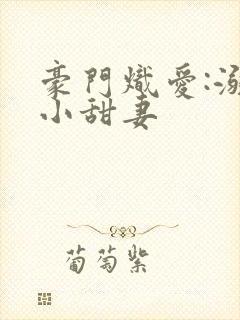 豪門熾愛:溺
小甜妻
葡萄紫